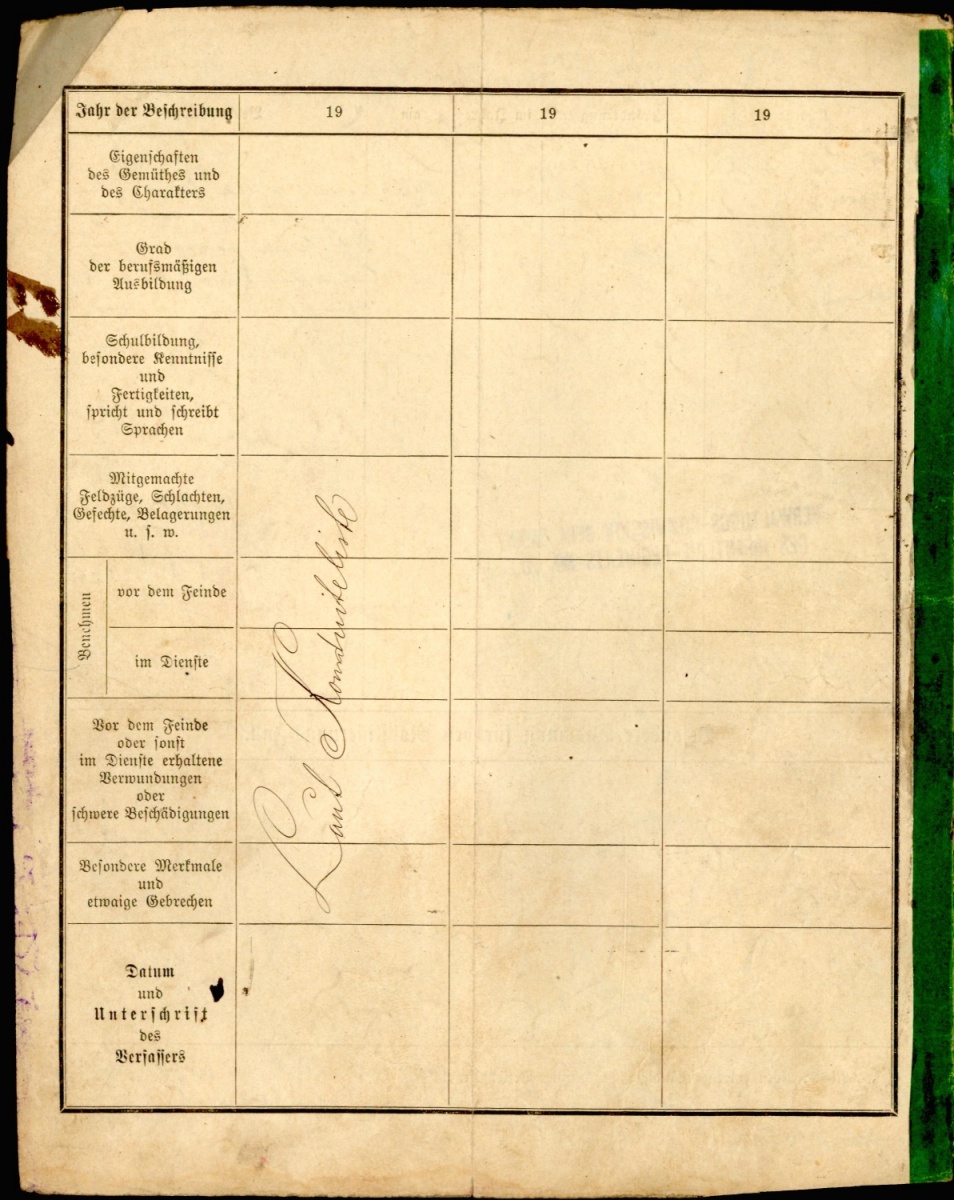 Jahr der Beschreibung 19 19 19
Eigenschaften
des Gemüthes und
des Charakters
Grad
der berufsmäßigen
Ausbildung
Schulbildung,
besondere Kenntnisse
und
Fertigkeiten,
spricht und schreibt
Sprachen
Mitgemachte
Feldzüge, Schlachten,
Gefechte, Belagerungen
u. s. w.
Benehmen
vor dem Feinde
im Dienste
Vor dem Feinde
oder sonst
im Dienste erhaltene
Verwundungen
oder
schwere Beschädigungen
Besondere Merkmale
und
etwaige Gebrechen
Datum
und
Unterschrift
des
Verfassers
Laut Konduiteliste